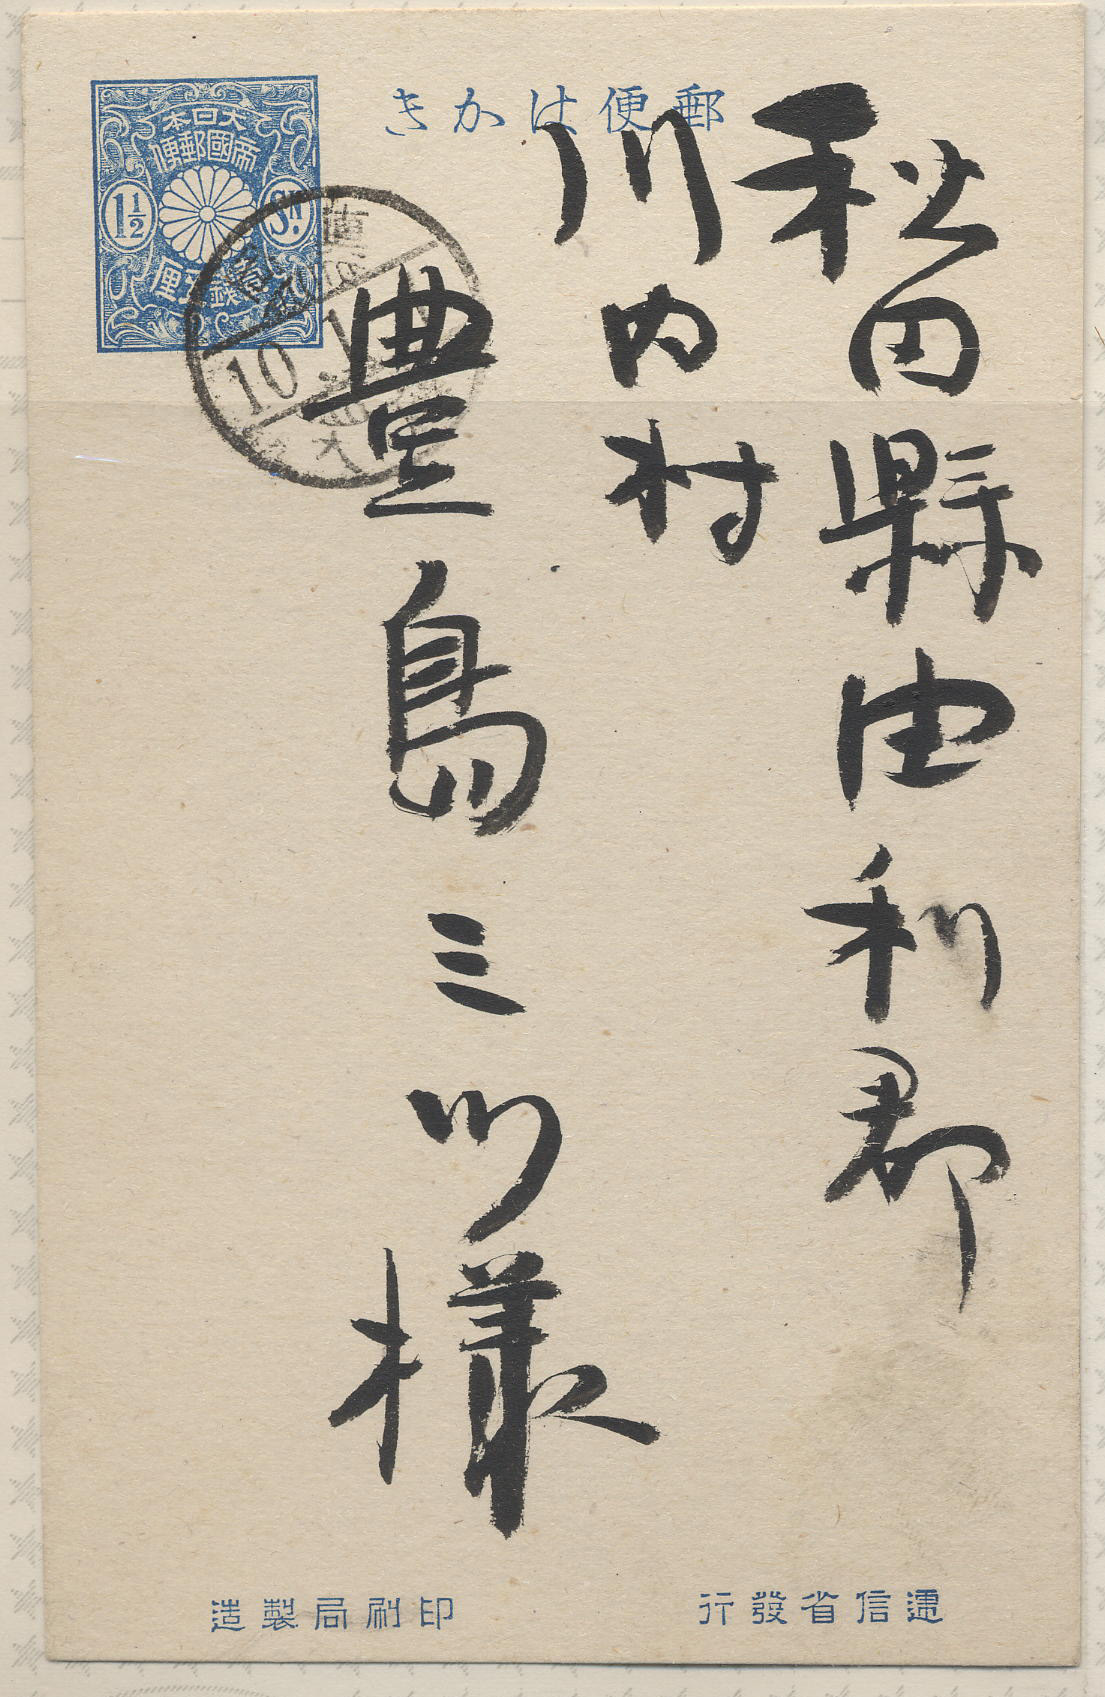 郵便はかき
大日本
帝國郵便
1½
SN.
10
秋田縣由利郡
川内村
豊島三川様
逓信省發行
印刷局製造